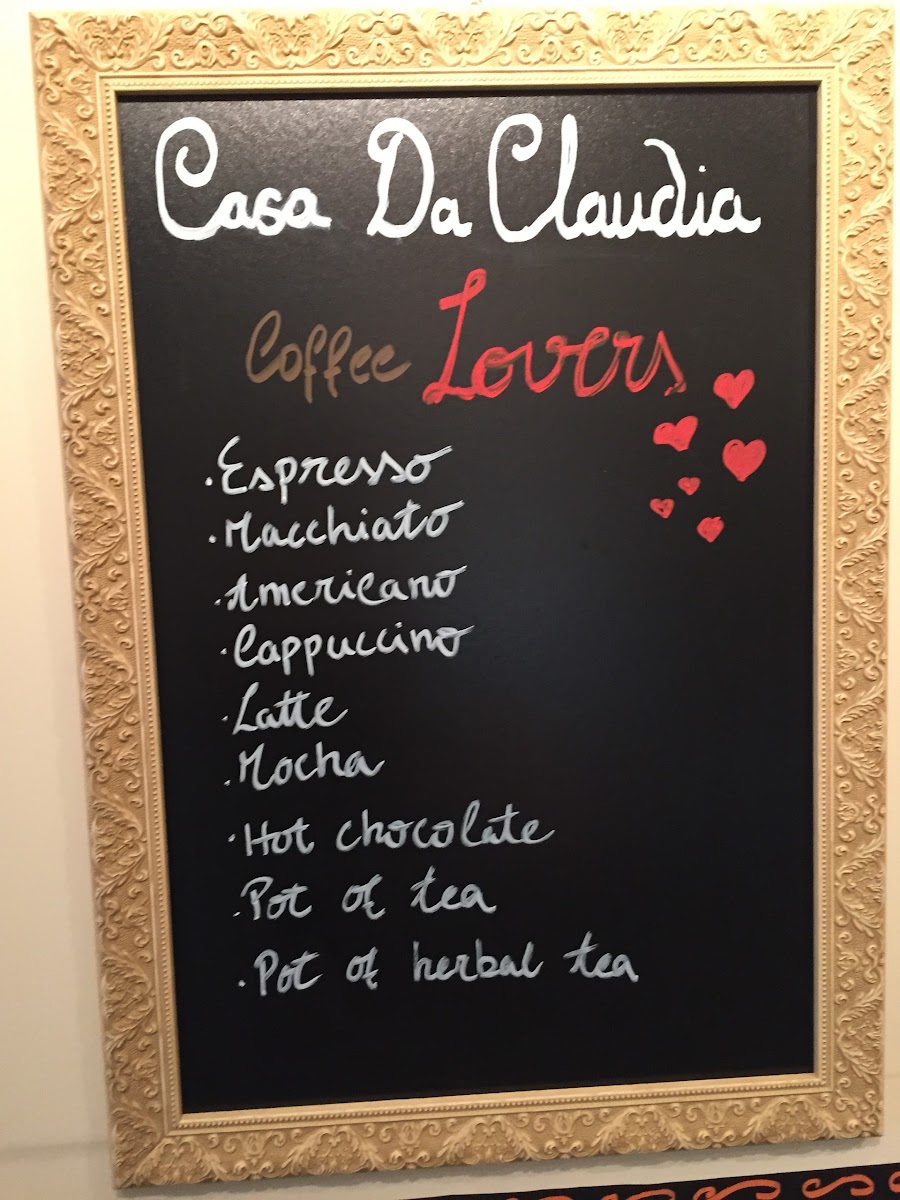 Casa Da Claudia
Coffee Lovers
. Espresso
. Macchiato
. Americano
. Cappuccino
. Latte
. Mocha
. Hot chocolate
. Pot of tea
. Pot of herbal tea